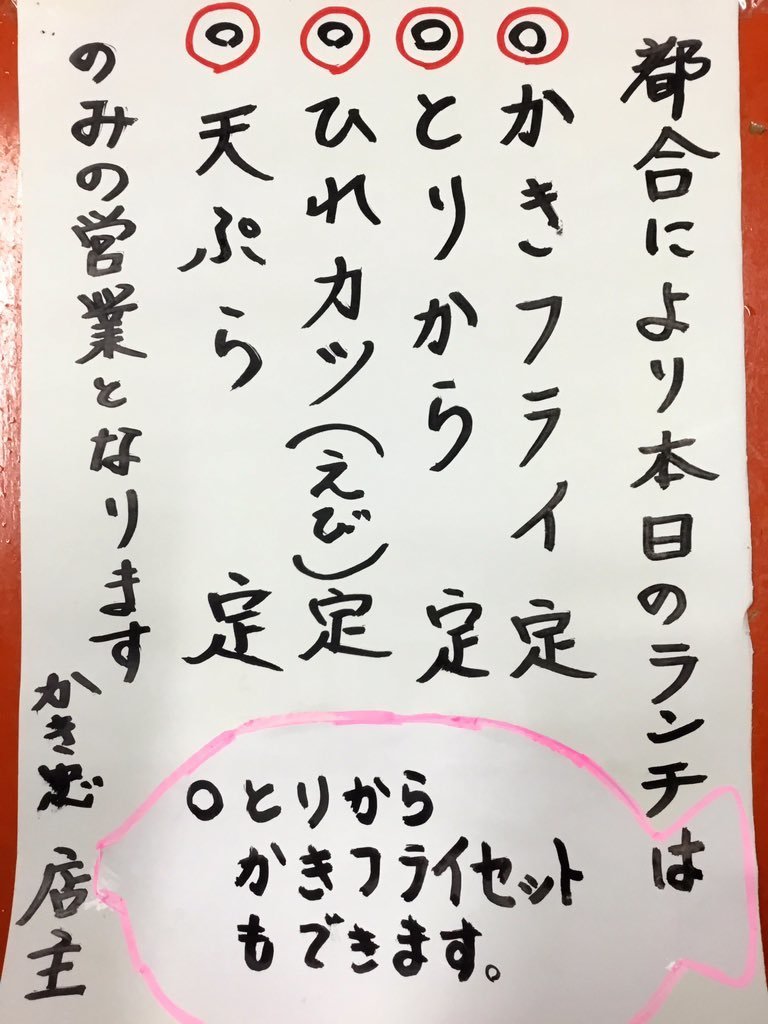 都合により本日のランチは
◎かきフライ定
◎とりから定
◎ひれカツ(えび)定
◎天ぷら定
のみの営業となります
かき忠 店主
○とりから
かきフライセット
もできます。